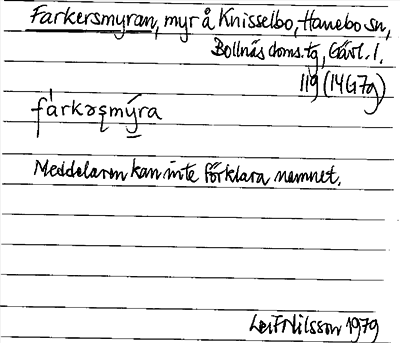 Farkersmyran, myr å Knisselbo, Hanebo sn,
Bollnäs doms.tg, Gävl.l.
119 (14G7g)
fàrkəʂmýra
Meddelaren kan inte förklara namnet.
Leif Nilsson 1979